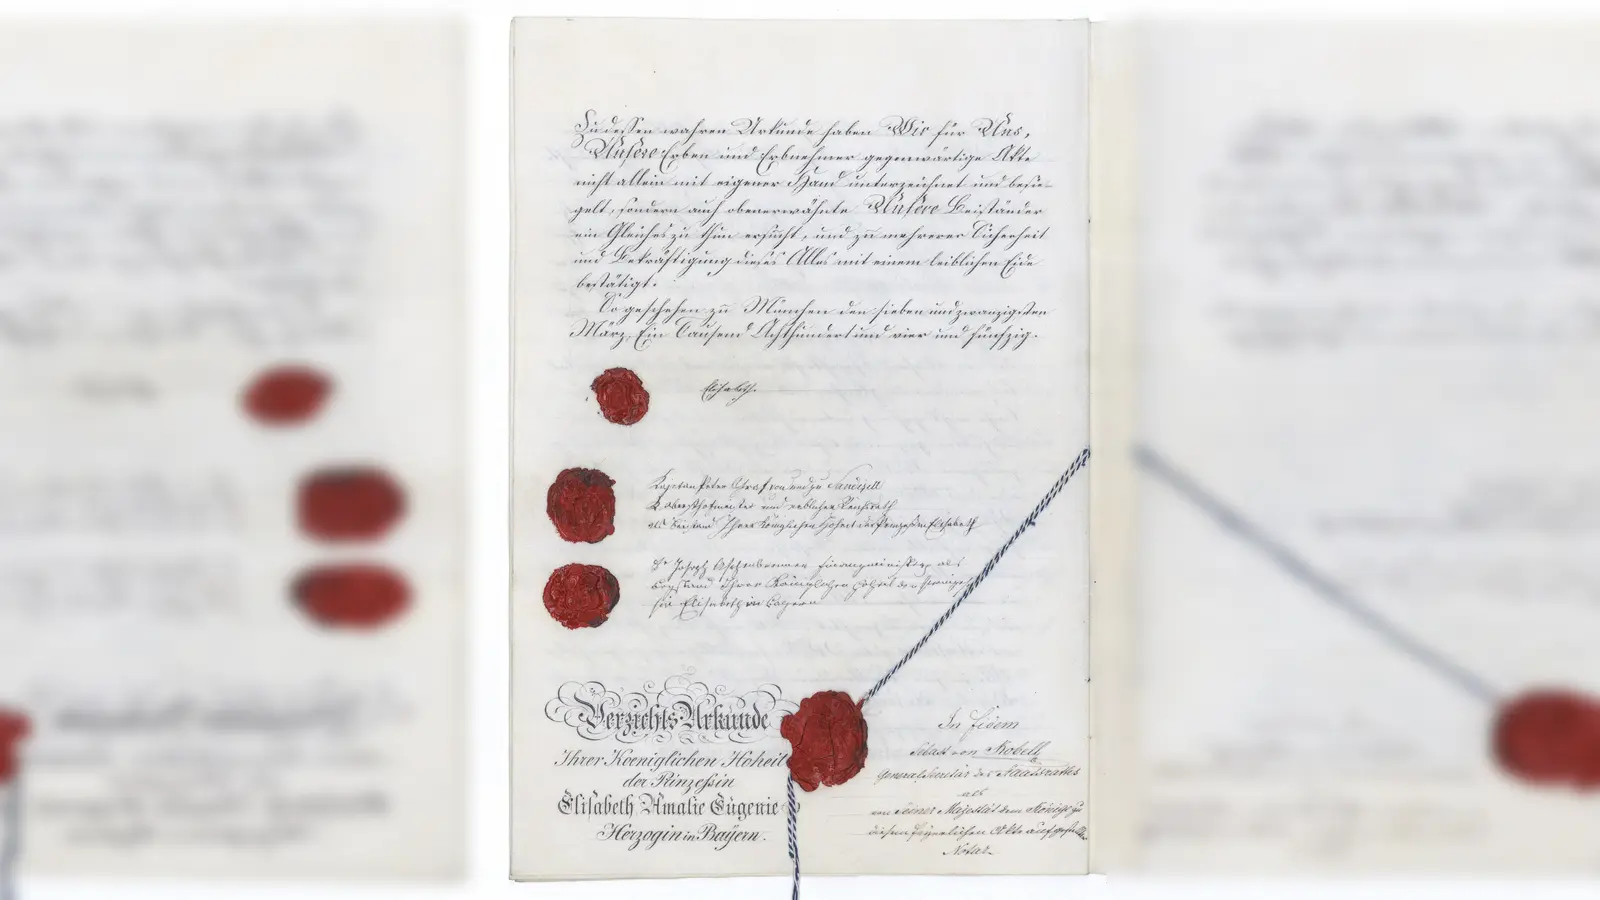 Zu dessen wahren Urkunde haben Wir für Uns,
Unsere Erben und Erbnehmer gegenwärtige Akte
nicht allein mit eigener Hand unterzeichnet und besie-
gelt, sondern auch obenerwähnte Unsere Beiständer
ein Gleiches zu thun ersucht, und zu mehrerer Sicherheit
und Bekräftigung dieses Alles mit einem leiblichen Eide
bestätigt.
So geschehen zu München den sieben und zwanzigsten
März, Ein Tausend Achthundert und vier und fünfzig.
Elisabeth.
Graf von und zu Sandizell
Obersthofmeister und erblicher Reichsrath
als Beistand Ihrer Königlichen Hoheit der Prinzessin Elisabeth
Dr Joseph Aschenbrenner Finanzminister als
Beystand Ihrer Königlichen Hoheit der Prinzes-
sin Elisabeth in Bayern
Verzichts-Urkunde
Ihrer Koeniglichen Hoheit
der Prinzeßin
Elisabeth Amalie Eugenie
Herzogin in Bayern.
In fidem
von Kobell
General Secretär des Staatsrathes
als
von Seiner Majestät dem Könige zu
diesem feyerlichen Akte aufgestellter
Notar